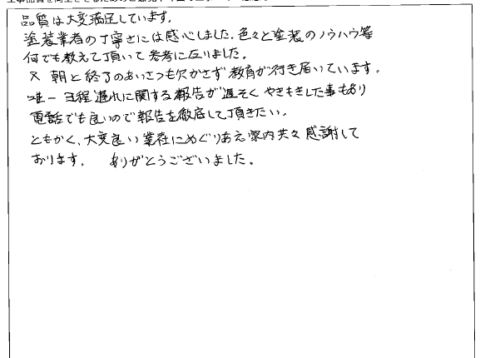 品質は大変満足しています。
塗装業者の丁寧さには感心しました。色々と塗装のノウハウ等
何でも教えて頂いて参考になりました。
又 朝と終了のあいさつも欠かさず教育が行き届いています。
唯一 日程遅れに関する報告が遅そくやきもきした事もあり
電話でも良いので報告を徹底して頂きたい。
ともかく、大変良い業社にめぐりあえ家内共々感謝して
おります。 ありがとうございました。